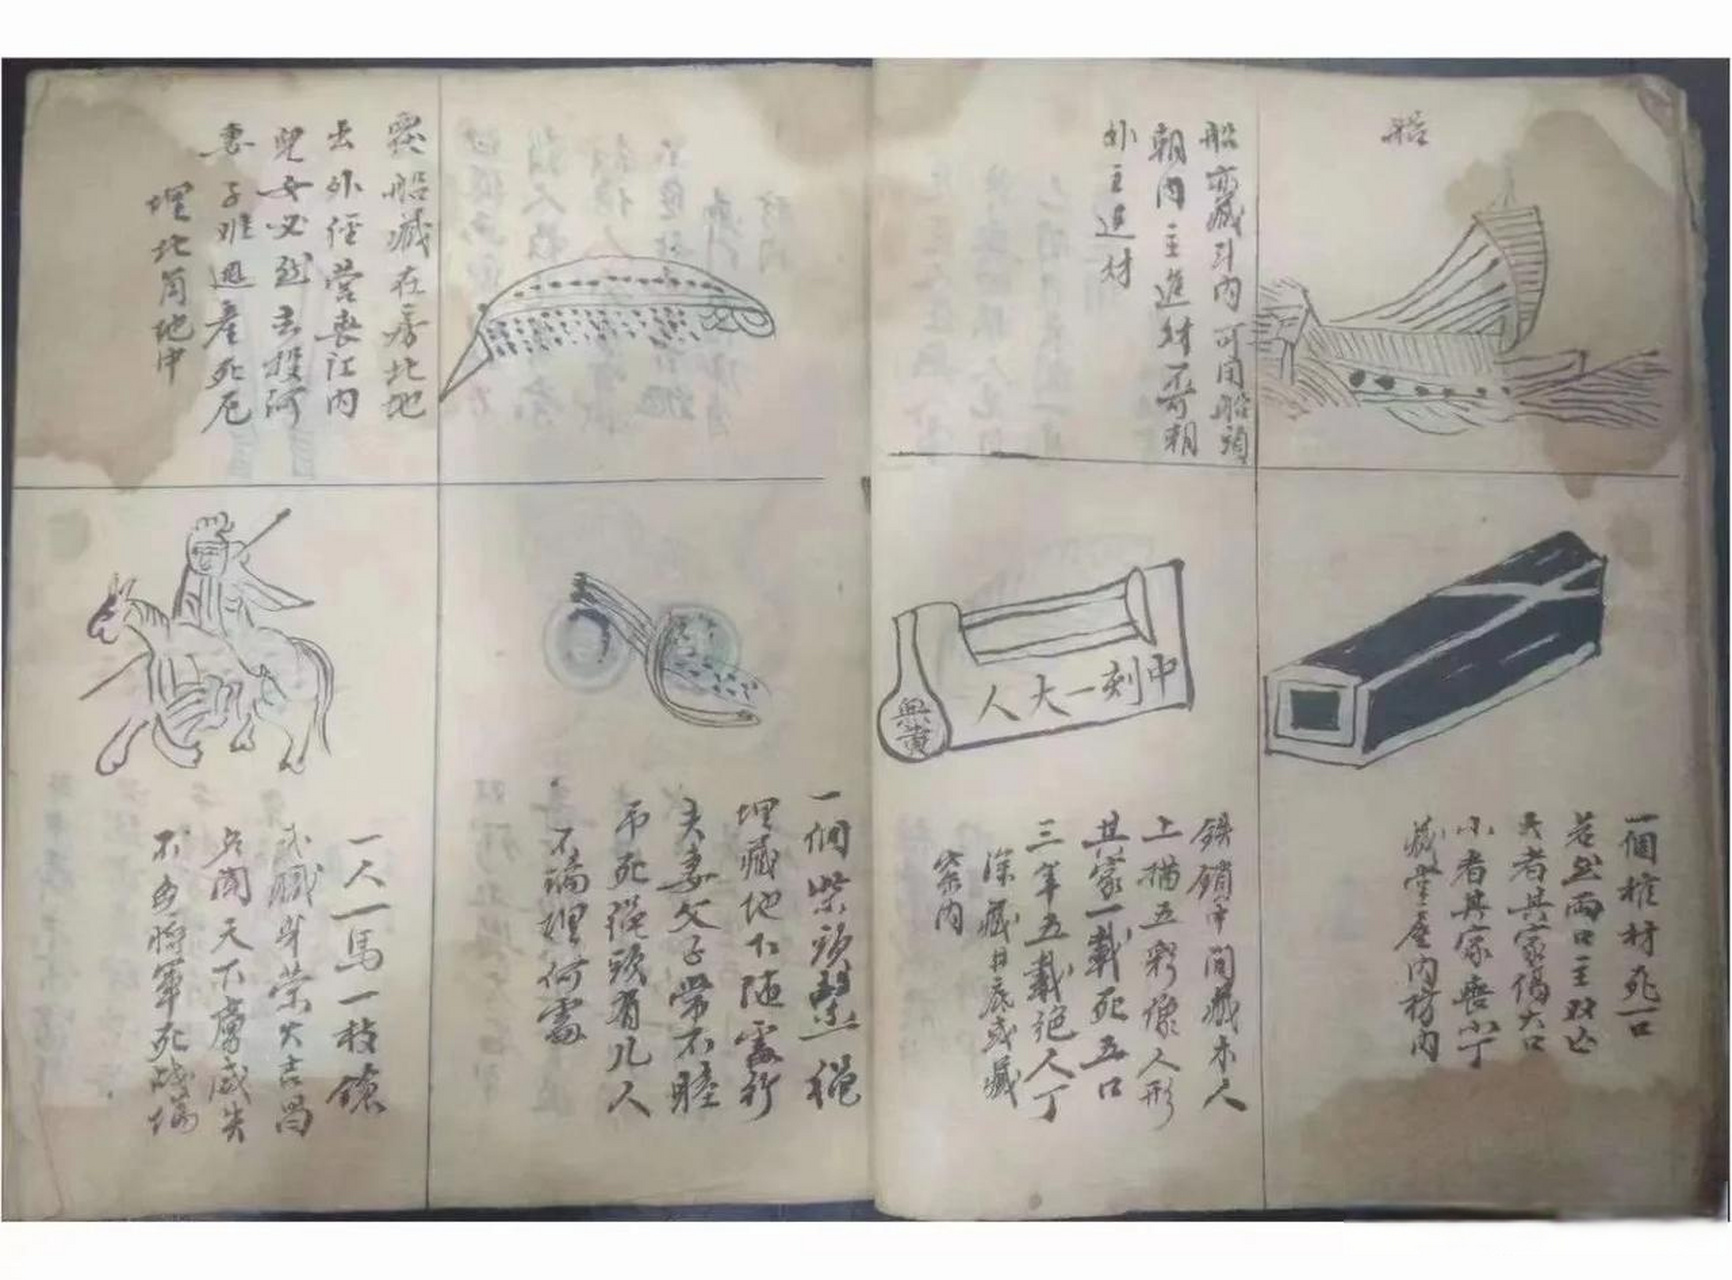 船
船亦藏斗内可用船頭
朝内主進財不可朝
外主退材
一個棺材死一口
若然兩口主双亡
大者其家傷大口
小者其家喪小丁
藏堂屋内枋内
興黃
中刻一大人
鉄鎖中间藏木人
上描五彩像人形
其家一載死五口
三年五載绝人丁
深藏井底或藏
梁内
覆船藏在房北地
去外徑营丧江内
兒女必到去投河
妻子难逃產死厄
埋北角地中
一個柴頭繫一绳
埋藏地下随處行
夫妻父子常不睦
吊死绳頭有几人
不論埋何處
一人一馬一枝鎗
武職身荣大吉昌
兵闻天下虜威失
不免將軍死战場